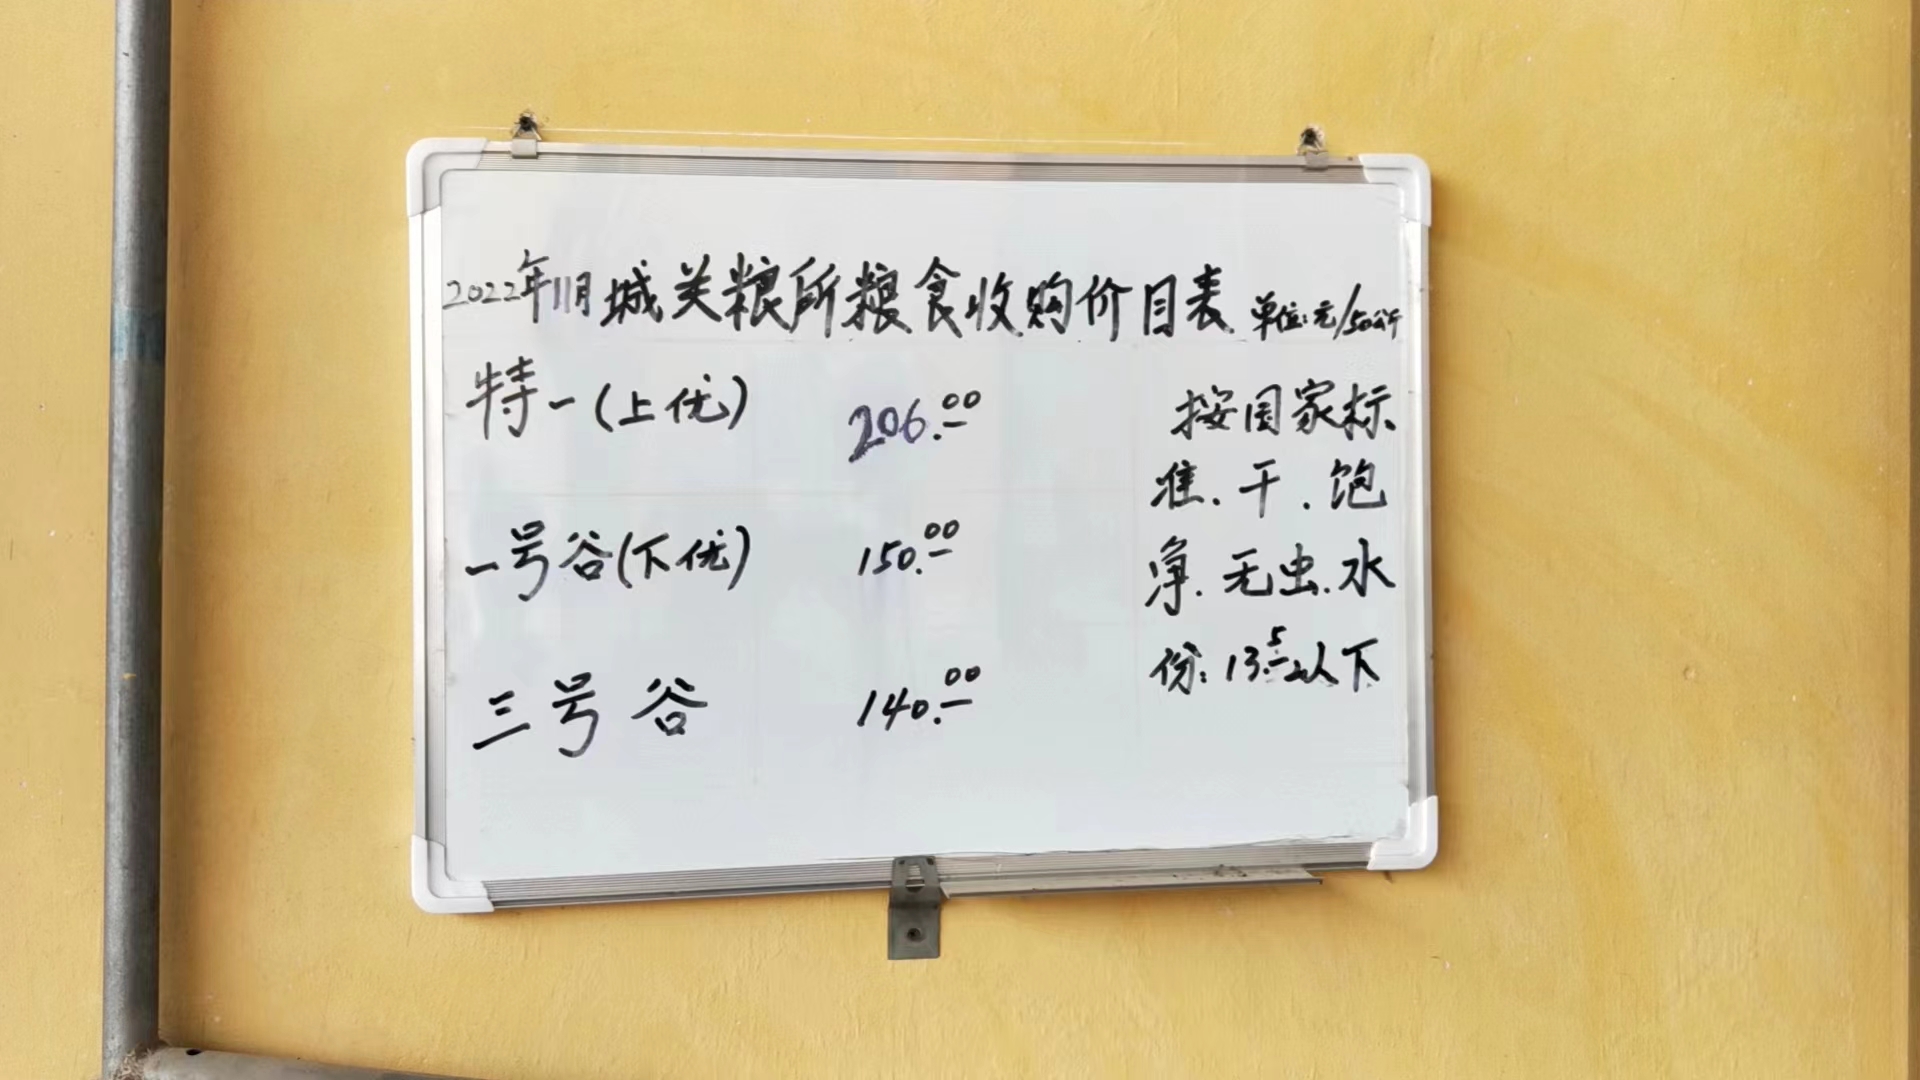 2022年11月城关粮所粮食收购价目表 单位:元/50公斤
特一(上优) 206.00
一号谷(下优) 150.00
三号谷 140.00
按国家标
准.干.饱
净.无虫.水
份:13.5以下